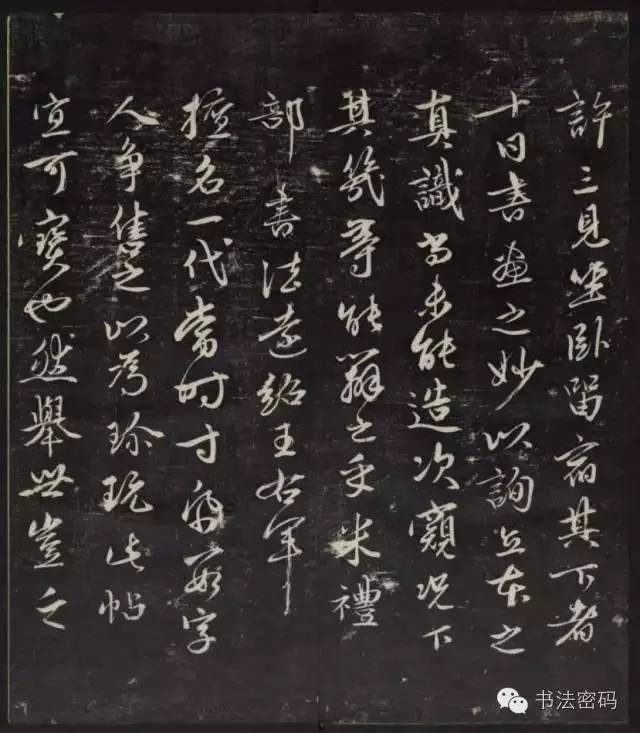 許三見坐卧留宿其下者
十日書畫之妙以詢
真識尚未能造次窺况下
其幾等能辯之乎米禮
部善法遠紹王右軍
擅名一代當時寸紙數字
人争售之以為珍玩此帖
宜可寶也然舉世豈之
书法密码